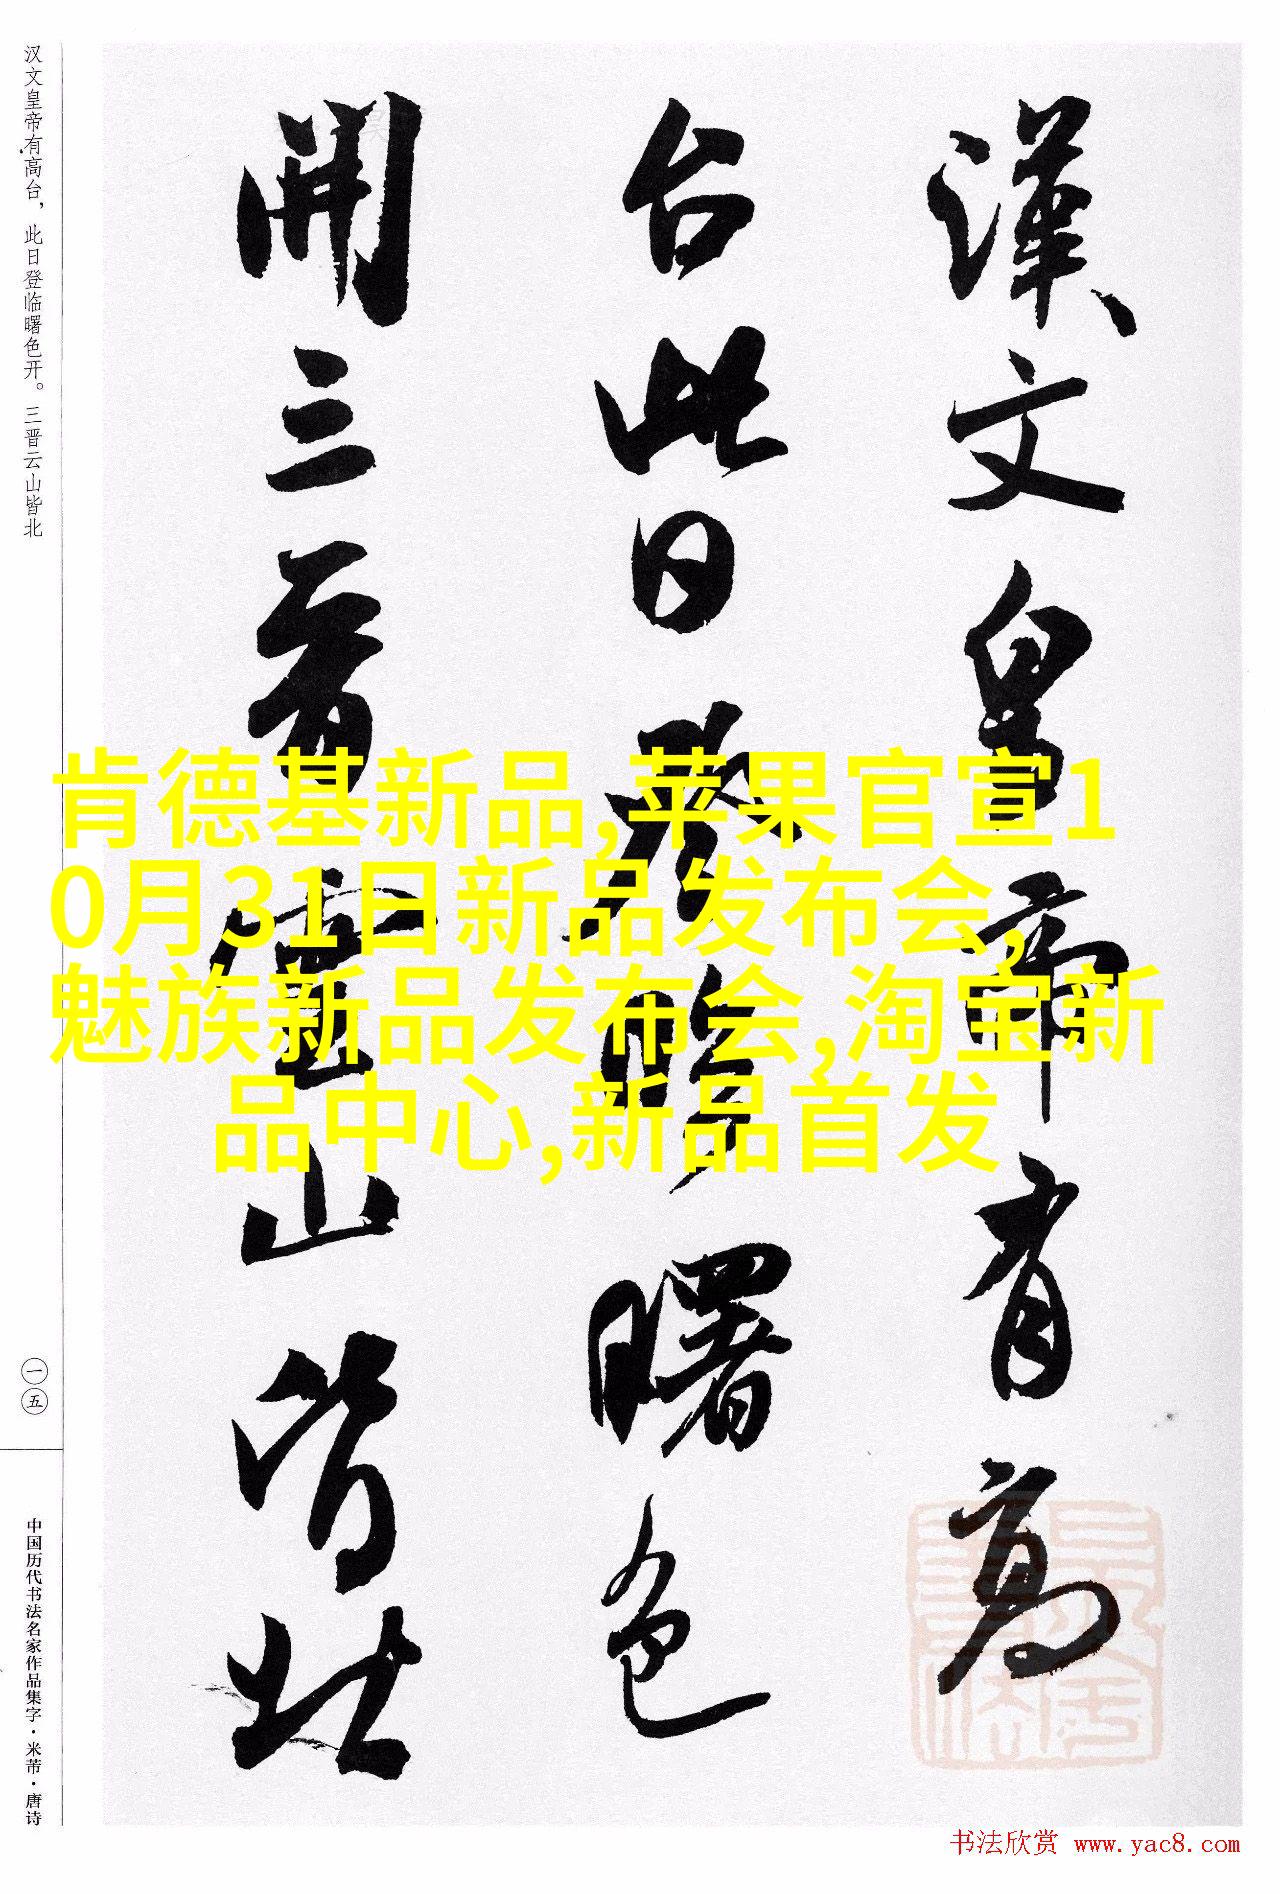 漢文皇帝有高
台此日登臨曙色
開三晉雲山皆北
汉文皇帝有高台，此日登临曙色开。三晋云山皆北
一五
中国历代书法名家作品集字·米芾·唐诗
肯德基新品,苹果官宣1
0月31日新品发布会,
魅族新品发布会,淘宝新
品中心,新品首发
书法欣赏 www.yac8.com